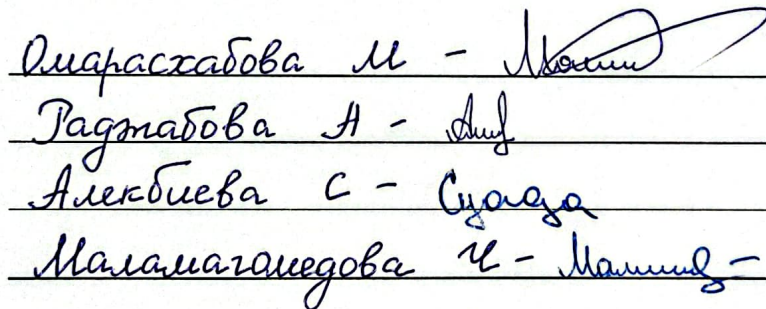 Омарасхабова М -
Раджабова А -
Алекбиева С -
Маламагомедова Ч -